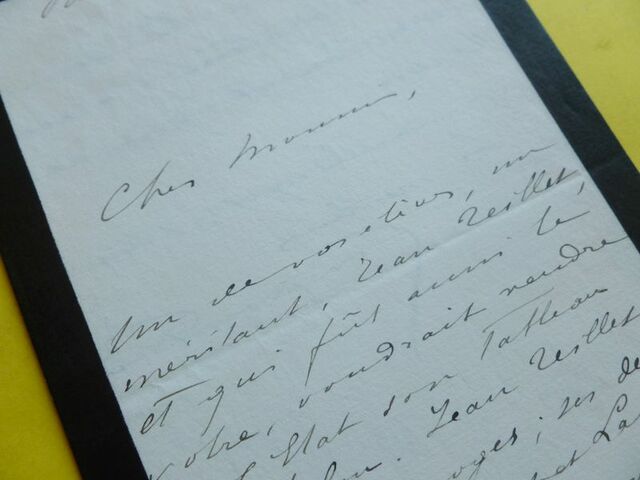 Cher Monsieur,
Un de vos élèves, un
méritant, Jean Teillet,
et qui fût aussi le
votre, voudrait vendre
l'Etat son Tableau
Jean Teillet
; ses de
et La